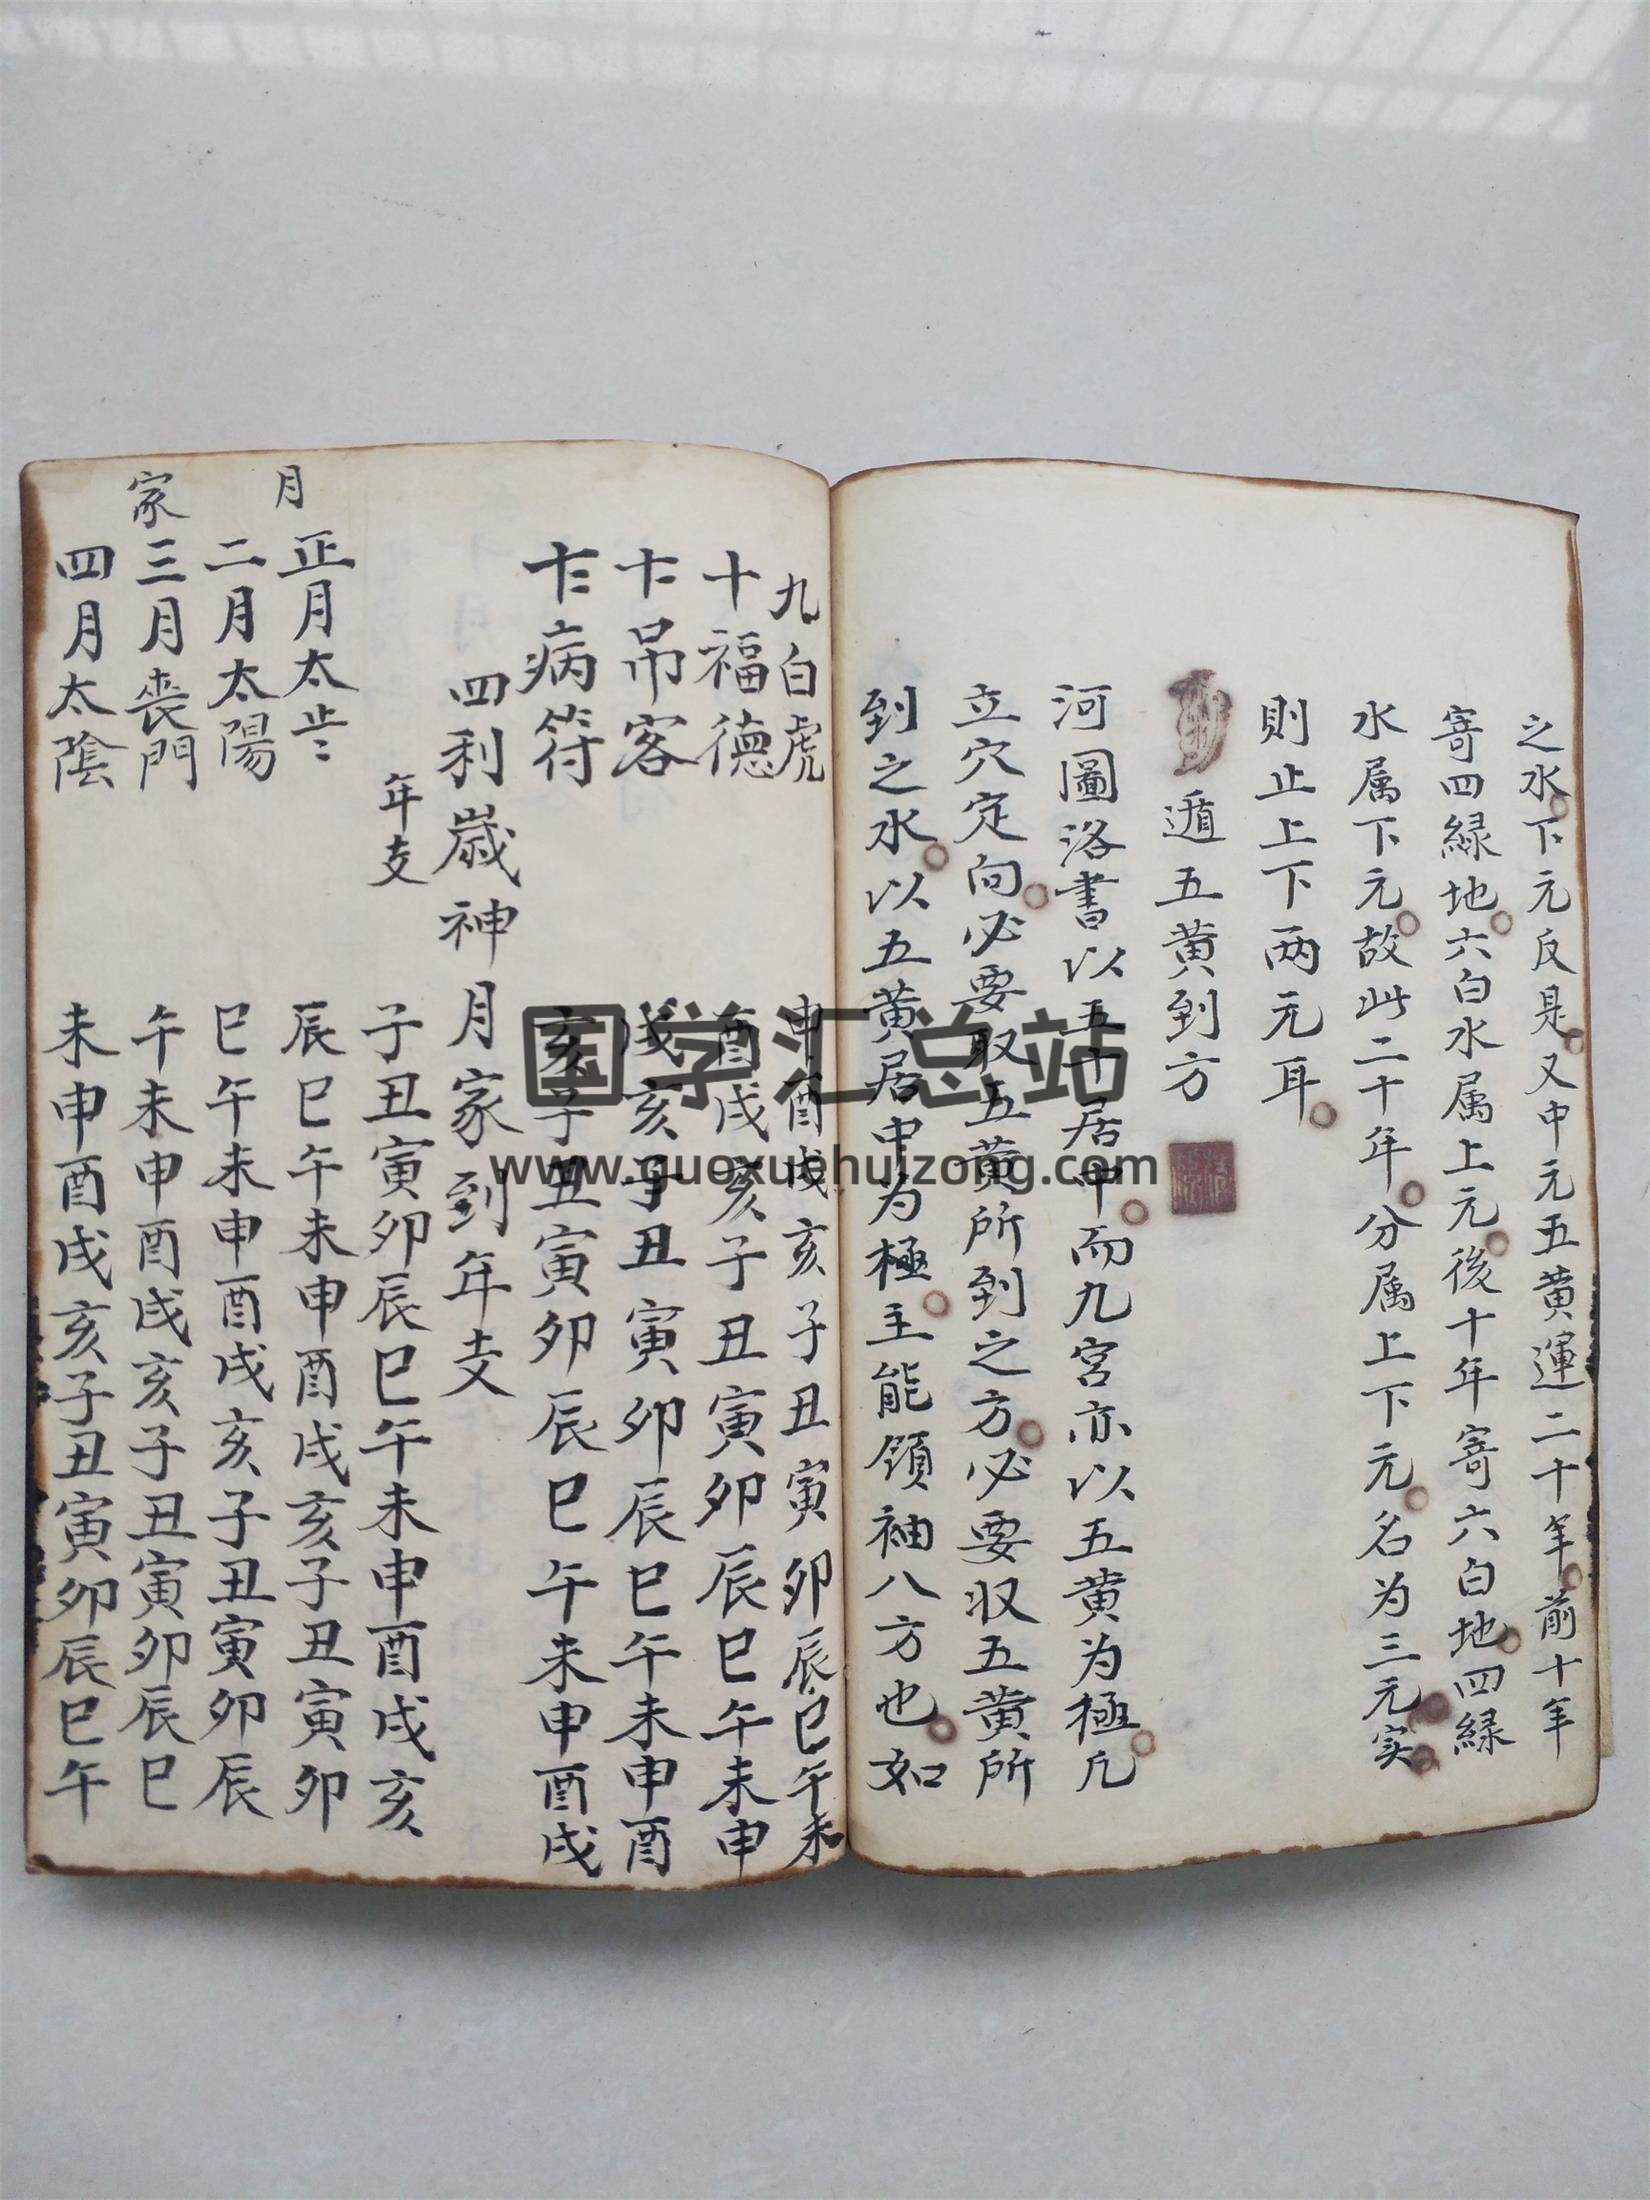 之水下元反是又中元五黄運二十年前十年
寄四緑地六白水属上元後十年寄六白地四緑
水属下元故此二十年分属上下元名为三元实
則止上下两元耳
遁五黄到方
河圖洛書以五十居中而九宫亦以五黄为極凡
立穴定向必要取五黄所到之方必要収五黄所
到之水以五黄居中为極主能領袖八方也如
九白虎 申酉戌亥子丑寅卯辰巳午未
十福德 酉戌亥子丑寅卯辰巳午未申
十一吊客 戌亥子丑寅卯辰巳午未申酉
十二病符 亥子丑寅卯辰巳午未申酉戌
四利歲神月家到年支
年支 子丑寅卯辰巳午未申酉戌亥
月
正月太 辰巳午未申酉戌亥子丑寅卯
二月太陽 巳午未申酉戌亥子丑寅卯辰
家
三月丧門 午未申酉戌亥子丑寅卯辰巳
四月太陰 未申酉戌亥子丑寅卯辰巳午
国学汇总站
www.guoxuehuizong.com